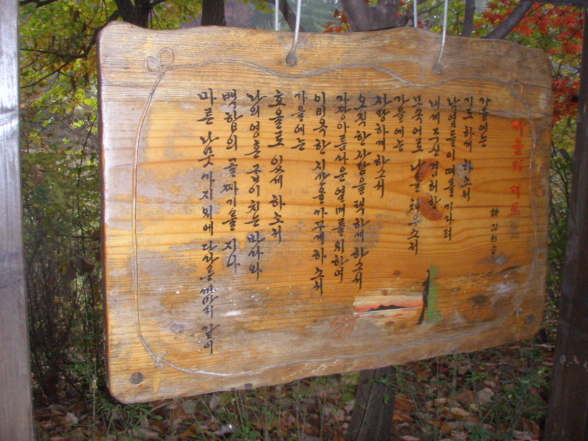 가을의 기도
김현승
가을에는
기도하게 하소서
낙엽들이 지는 때를 기다려
내게 주신 겸허한
모국어로 나를 채우소서
가을에는
사랑하게 하소서
오직 한 사람을 택하게 하소서
가장 아름다운 열매를 위하여
이 비옥한 시간을 가꾸게 하소서
가을에는
호올로 있게 하소서
나의 영혼 굽이치는 바다와
백합의 골짜기를 지나
마른 나뭇가지 위에 다다른 까마귀 같이